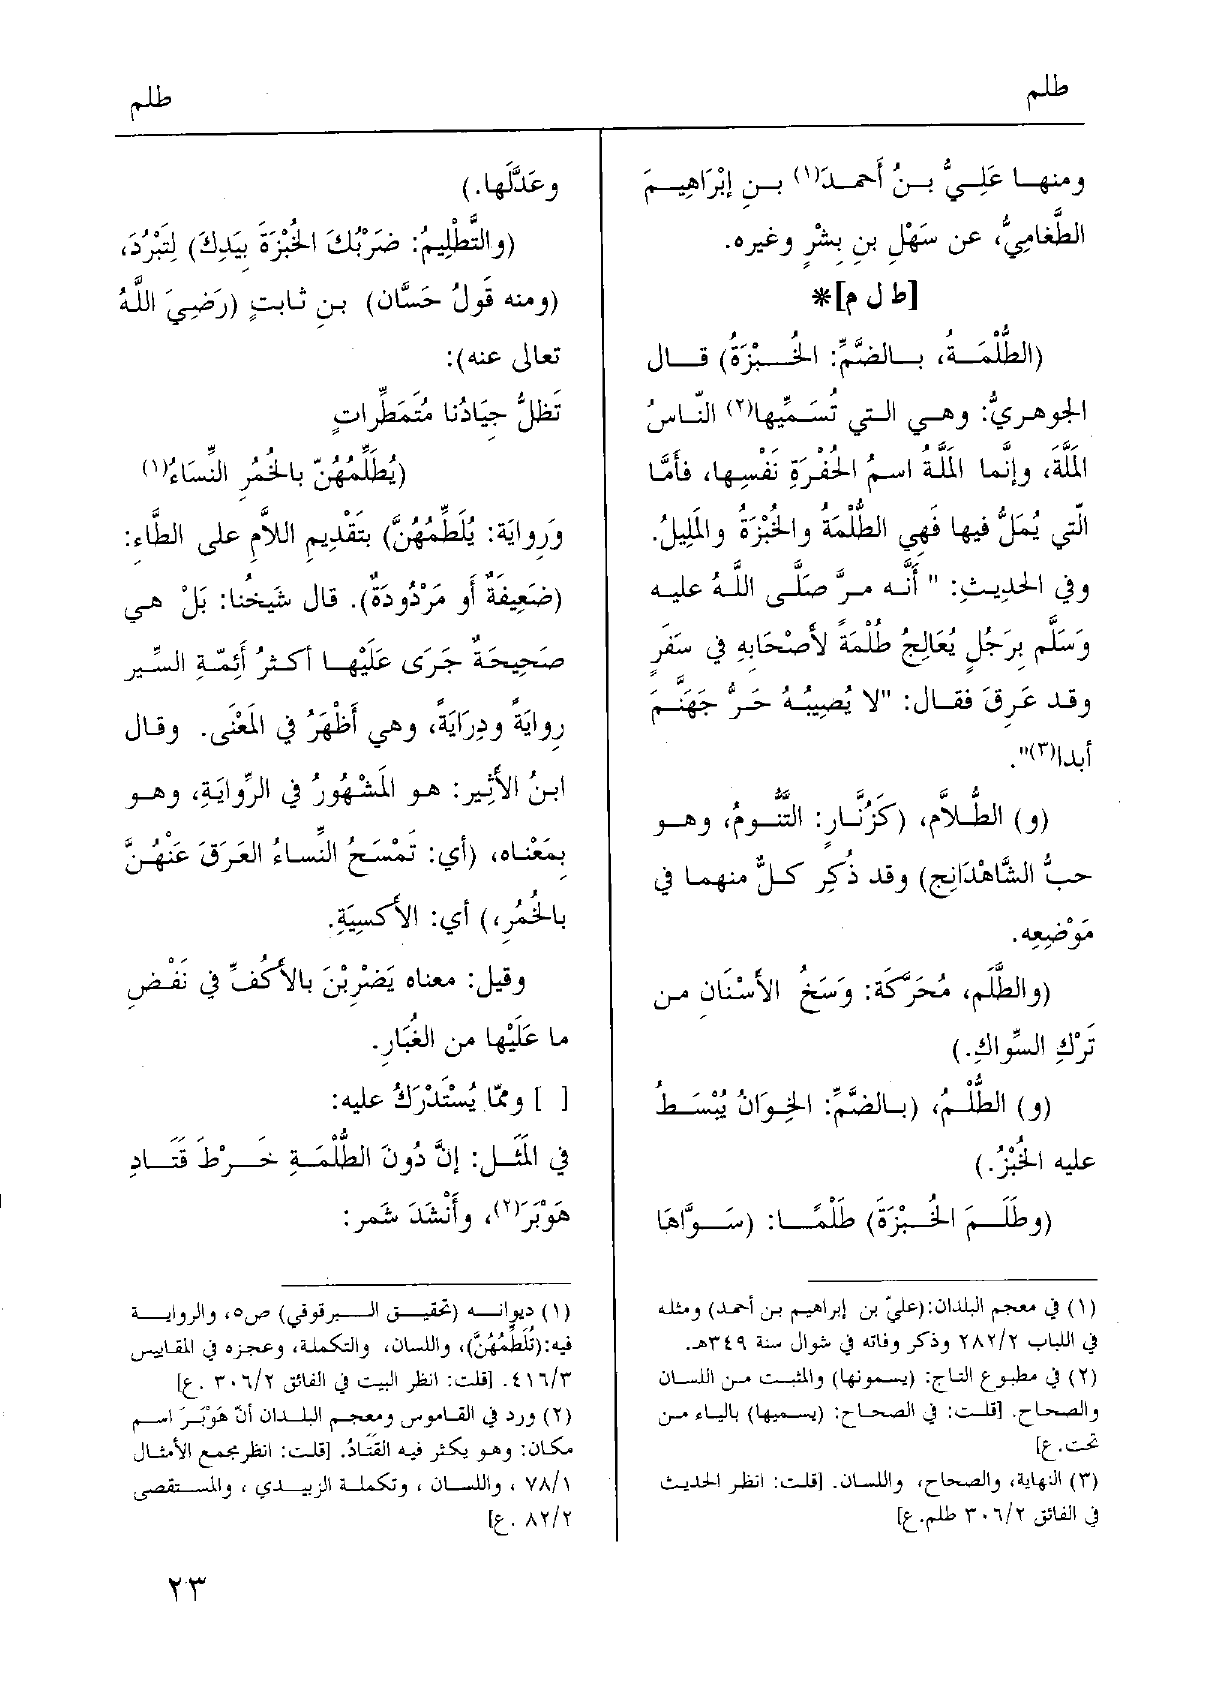 طلم
طلم
ومنها عَلِيُّ بنُ أَحمدَ(١) بنِ إِبْرَاهِيمَ
الطَّغامِيُّ، عن سَهْلِ بنِ بِشْرٍ وغيره.
[ط ل م]*
(الطُّلْمَةُ، بالضَّمِّ: الخُبْزَةُ) قال
الجوهريُّ: وهي التي تُسَمِّيها(٢) النّاسُ
المَلَّةَ، وإنَّما المَلَّةُ اسمُ الحُفْرَةِ نَفْسِها، فأَمَّا
الّتي يُمَلُّ فيها فَهِي الطُّلْمَةُ والخُبْزَةُ والمَلِيلُ.
وفي الحديثِ: " أَنَّه مرَّ صَلَّى اللَّهُ عليه
وَسَلَّم بِرَجُلٍ يُعَالِجُ طُلْمَةً لأَصْحَابِهِ في سَفَرٍ
وقد عَرِقَ فقال: "لا يُصِيبُهُ حَرُّ جَهَنَّمَ
أبدا(٣)".
(و) الطُّلاَّم، (كَزُنَّارٍ: التَّنُّومُ، وهو
حبُّ الشَّاهْدَانِج) وقد ذُكِر كلٌّ منهما في
مَوْضِعِه.
(والطَّلَم، مُحَرَّكَة: وَسَخُ الأَسْنَانِ من
تَرْكِ السِّواكِ.)
(و) الطُّلْمُ، (بالضَّمِّ: الخِوَانُ يُبْسَطُ
عليه الخُبْزُ.)
(وطَلَمَ الخُبْزَةَ) طَلْمًا: (سَوَّاهَا
(١) في معجم البلدان:(عليّ بن إبراهيم بن أحمد) ومثله
في اللباب ٢٨٢/٢ وذكر وفاته في شوال سنة ٣٤٩هـ.
(٢) في مطبوع التاج: (يسمونها) والمثبت من اللسان
والصحاح. [قلت: في الصحاح: (يسميها) بالياء من
تحت.ع]
(٣) النهاية، والصحاح، واللسان. [قلت: انظر الحديث
في الفائق ٣٠٦/٢ طلم.ع]
وعَدَّلَها.)
(والتَّطْلِيمُ: ضَرْبُكَ الخُبْزَةَ بِيَدِكَ) لِتَبْرُدَ،
(ومنه قَولُ حَسَّان) بنِ ثابتٍ (رَضِيَ اللَّهُ
تعالى عنه):
تَظَلُّ جِيَادُنا مُتَمَطِّراتٍ
(يُطَلِّمُهُنّ بالخُمُرِ النِّسَاءُ(١)
وَرِوايَة: يُلَطِّمُهُنَّ) بتَقْدِيمِ اللاَّمِ على الطَّاءِ:
(ضَعِيفَةٌ أو مَرْدُودَةٌ). قال شَيخُنا: بَلْ هي
صَحِيحَةٌ جَرَى عَلَيْها أَكثرُ أَئِمَّةِ السِّير
رِوايةً ودِرَايَةً، وهي أَظْهَرُ في المَعْنَى. وقال
ابنُ الأَثِير: هو المَشْهُورُ في الرِّوايَةِ، وهو
بِمَعْناه، (أي: تَمْسَحُ النِّساءُ العَرَقَ عَنْهُنَّ
بالخُمُرِ،) أي: الأَكسِيَةِ.
وقيل: معناه يَضْرِبْنَ بالأَكُفِّ في نَفْضِ
ما عَلَيْها من الغُبَارِ.
[ ] وممّا يُسْتَدْرَكُ عليه:
في المَثَل: إنَّ دُونَ الطُّلْمَةِ خَرْطَ قَتَادِ
هَوْبَرَ(٢)، وأَنْشَدَ شَمر:
(١) ديوانه (تحقيق البرقوقي) ص٥، والرواية
فيه:(تُلَطِّمُهُنَّ)، واللسان، والتكملة، وعجزه في المقاييس
٤١٦/٣. [قلت: انظر البيت في الفائق ٣٠٦/٢ .ع]
(٢) ورد في القاموس ومعجم البلدان أنّ هَوْبَرَ اسم
مكان: وهو يكثر فيه القَتَادُ. [قلت: انظر مجمع الأمثال
٧٨/١ ، واللسان ، وتكملة الزبيدي ، والمستقصى
٨٢/٢ .ع]
٢٣